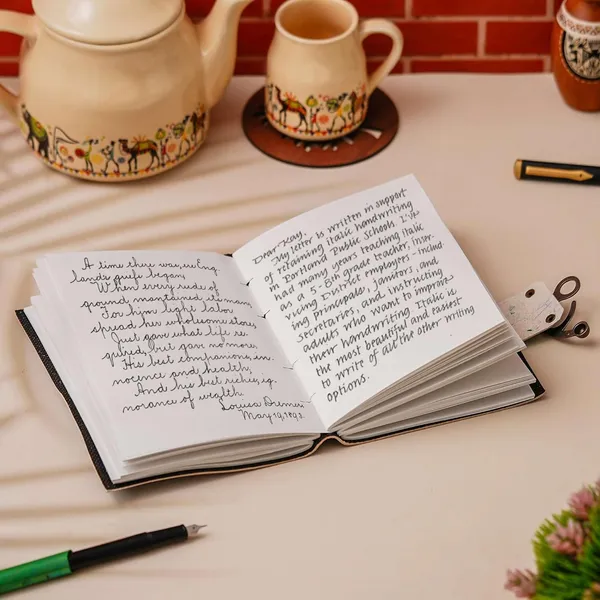 A time there was, ere Eng-
land's griefs began,
When every rude of
ground maintained its man,
For him light labor
spread her wholesome store,
Just gave what life re-
quired, but gave no more,
His best companions, in-
nocence and health,
And his best riches, ig-
norance of wealth.
Louisa Diemer
May 19, 1892.
Dear Kay,
My letter is written in support
of retaining italic handwriting
in Portland Public Schools. I've
had many years teaching italic
as a 5-8th grade teacher, inser-
vicing District employees - includ
ing principals, janitors, and
secretaries, and instructing
adults who want to improve
their handwriting. Italic is
the most beautiful and easiest
to write of all the other writing
options.